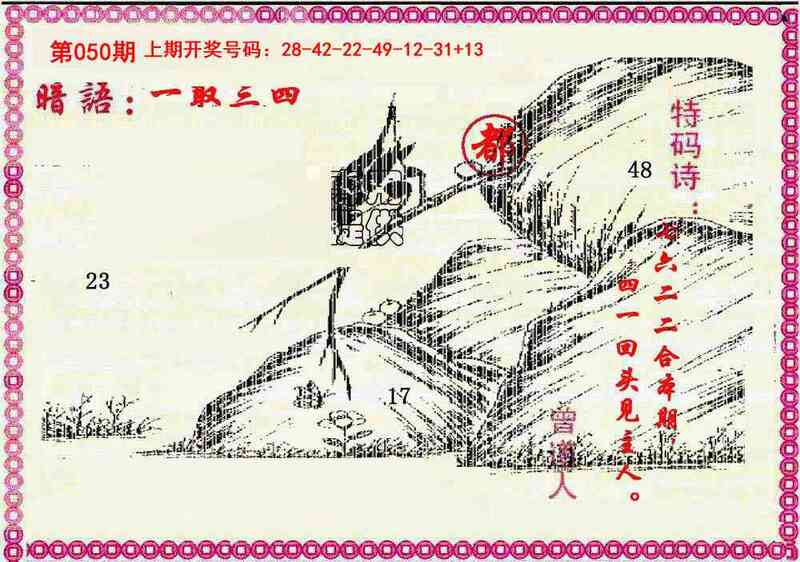 第050期 上期开奖号码：28-42-22-49-12-31+13
暗語：一取三四
都
48
特码诗：
七六二二合本期，
四一回头见主人。
23
17
曾道人